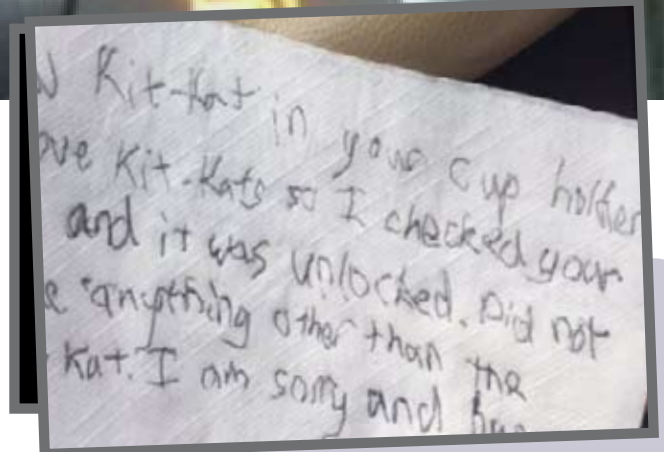 Kit-Kat in your cup holder
ove Kit-Kats so I checked your
and it was unlocked. Did not
e anything other than the
Kat. I am sorry and